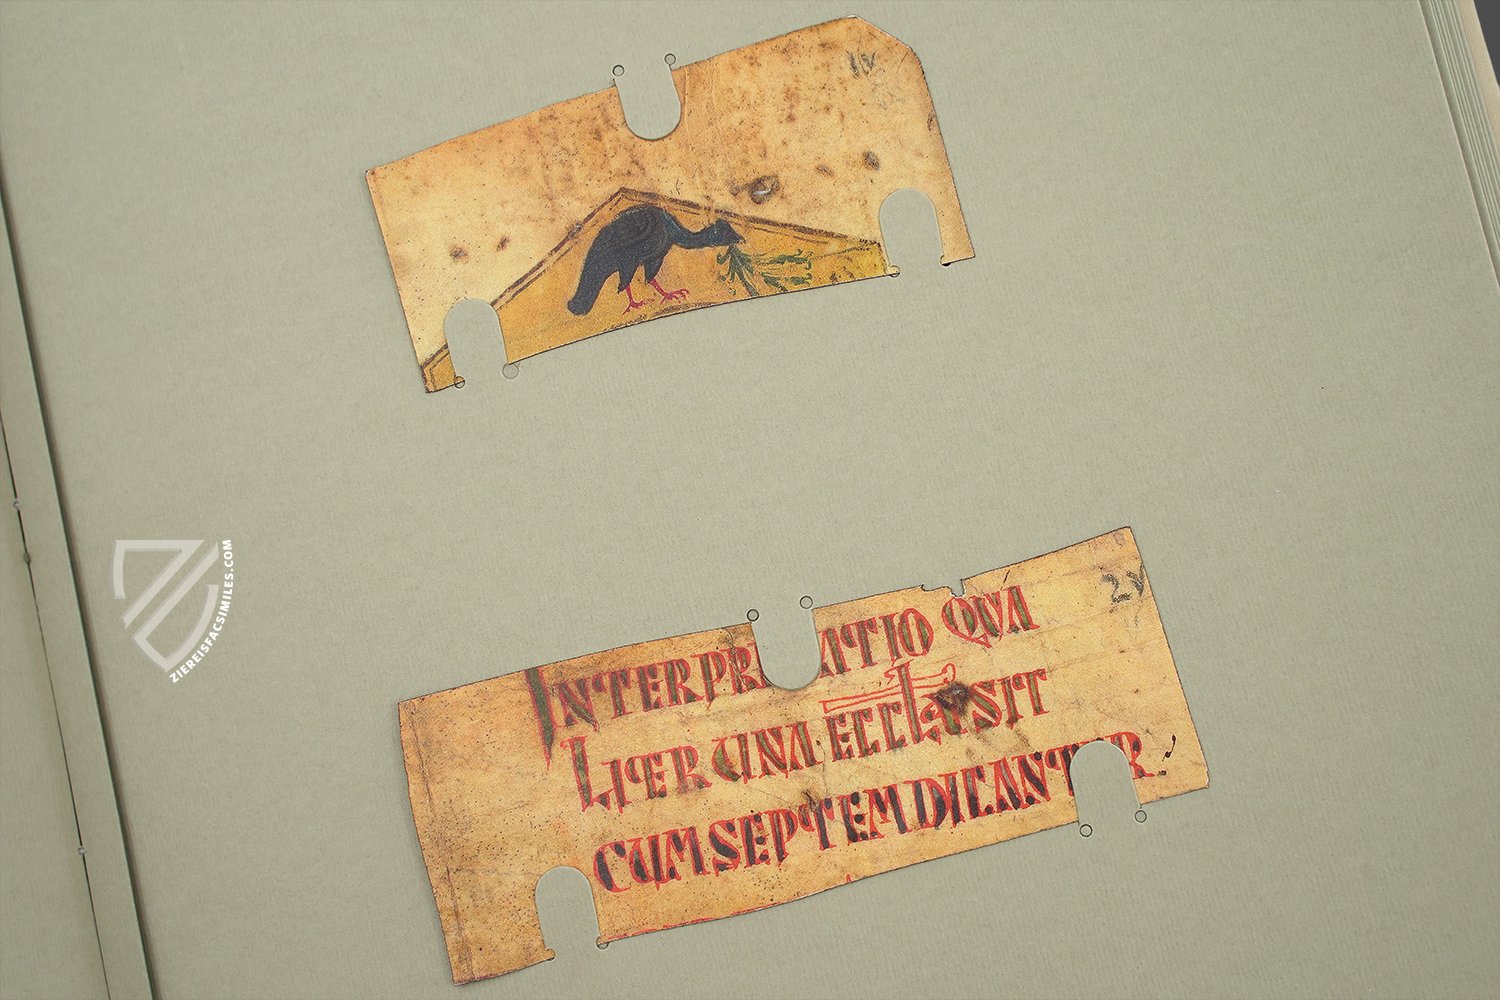 1v
2v
INTERPRE ATIO QVA
LITER UNA ECCLA SIT
CUM SEPTEM DICANTUR
ZIEREISFACSIMILES.COM